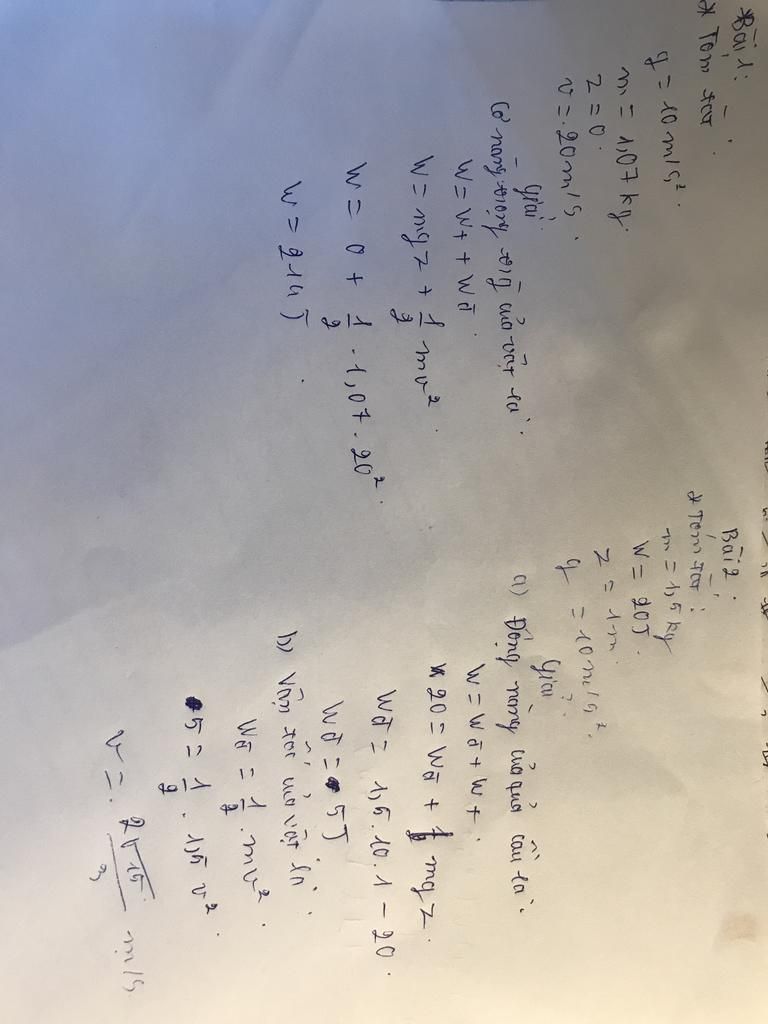 Bài 1:
* Tóm tắt
g = 10 m/s².
m = 1,07 kg.
z = 0.
v = 20 m/s.
Giải
Cơ năng trọng trường của vật là.
W = Wt + Wđ.
W = mgz + 1/2 mv².
W = 0 + 1/2 . 1,07 . 20².
W = 214 J.
Bài 2:
* Tóm tắt:
m = 1,5 kg
W = 20J.
z = 1m.
g = 10 m/s².
Giải
a) Động năng của quả cầu là.
W = Wđ + Wt.
20 = Wđ + mgz.
Wđ = 1,5 . 10 . 1 - 20.
Wđ = 5J
b) Vận tốc của vật là.
Wđ = 1/2 . mv².
5 = 1/2 . 1,5 v².
v = 2√15/3 m/s.